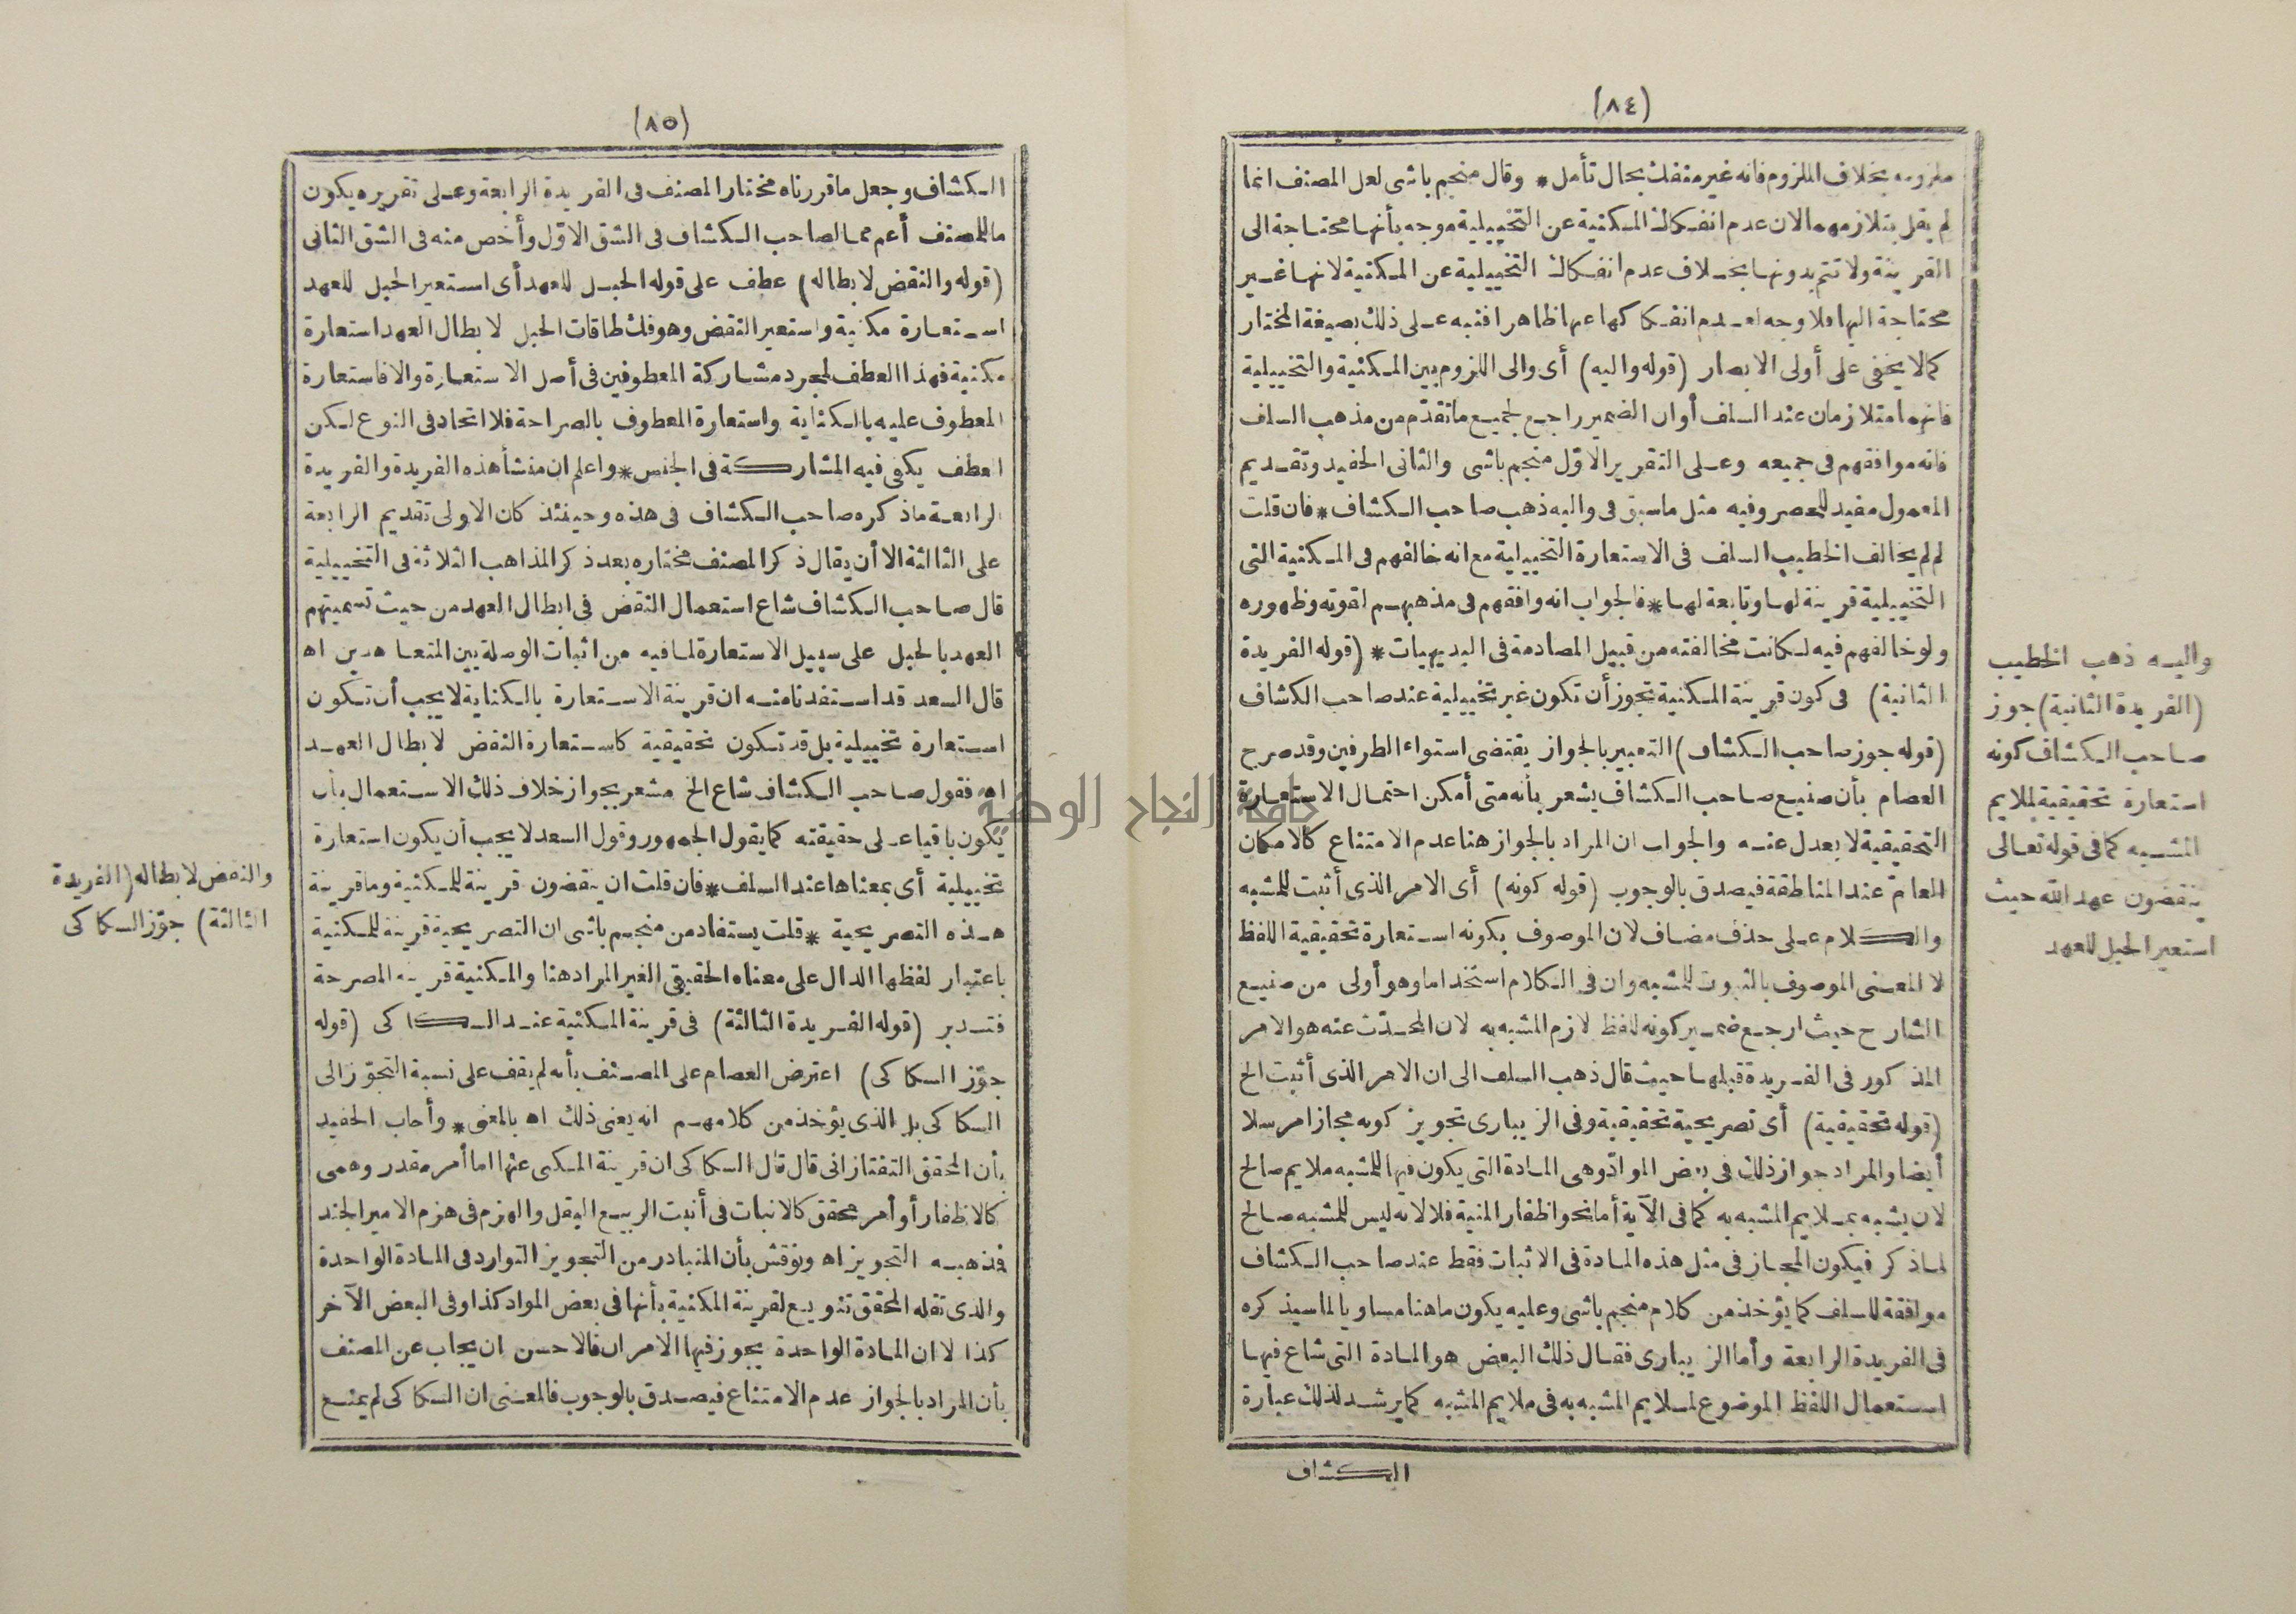 (٨٤)
ملزومه بخلاف الملزوم فانه غير منفك بحال تأمل * وقال منجم باشى لعل المصنف انما
لم يقل بتلازمهما لان عدم انفكاك المكنية عن التخييلية موجه بأنها محتاجة الى
القرينة ولا تتم بدونها بخلاف عدم انفكاك التخييلية عن المكنية لانها غير
محتاجة اليها فلا وجه لعدم انفكاكها عنها ظاهرا فنبه على ذلك بصيغة المختار
كما لا يخفى على أولى الابصار (قوله واليه) أى والى اللزوم بين المكنية والتخييلية
فانهما متلازمان عند السلف أو ان الضمير راجع لجميع ما تقدّم من مذهب السلف
فانه موافقهم فى جميعه وعلى التقرير الاوّل منجم باشى والثانى الحفيد وتقديم
المعمول مفيد للحصر وفيه مثل ما سبق فى واليه ذهب صاحب الكشاف * فان قلت
لم لم يخالف الخطيب السلف فى الاستعارة التخييلية مع انه خالفهم فى المكنية التى
التخييلية قرينة لها وتابعة لها * فالجواب انه وافقهم فى مذهبهم لقوته وظهوره
ولو خالفهم فيه لكانت مخالفته من قبيل المصادمة فى البديهيات * (قوله الفريدة
الثانية) فى كون قرينة المكنية تجوز أن تكون غير تخييلية عند صاحب الكشاف
(قوله جوز صاحب الكشاف) التعبير بالجواز يقتضى استواء الطرفين وقد صرح
العصام بأن صنيع صاحب الكشاف يشعر بأنه متى أمكن احتمال الاستعارة
التحقيقية لا يعدل عنه والجواب ان المراد بالجواز هنا عدم الامتناع كالامكان
العامّ عند المناطقة فيصدق بالوجوب (قوله كونه) أى الامر الذى أثبت للمشبه
والكلام على حذف مضاف لان الموصوف بكونه استعارة تحقيقية اللفظ
لا المعنى الموصوف بالثبوت للمشبه وان فى الكلام استخداما وهو أولى من صنيع
الشارح حيث ارجع ضمير كونه للفظ لازم المشبه به لان المحدّث عنه هو الامر
المذكور فى الفريدة قبلها حيث قال ذهب السلف الى ان الامر الذى أثبت الخ
(قوله تحقيقية) أى تصريحية تحقيقية وفى الزيبارى تجويز كونه مجازا مرسلا
أيضا والمراد جواز ذلك فى بعض الموادّ وهى المادة التى يكون فيها للمشبه ملايم صالح
لان يشبه بملايم المشبه به كما فى الآية أما نحو اظفار المنية فلا لانه ليس للمشبه صالح
لما ذكر فيكون المجاز فى مثل هذه المادة فى الاثبات فقط عند صاحب الكشاف
موافقة للسلف كما يؤخذ من كلام منجم باشى وعليه يكون ما هنا مساويا لما سيذكره
فى الفريدة الرابعة وأما الزيبارى فقال ذلك البعض هو المادة التى شاع فيها
استعمال اللفظ الموضوع لملايم المشبه به فى ملايم المشبه كما يرشد لذلك عبارة
الكشاف
واليه ذهب الخطيب
(الفريدة الثانية) جوز
صاحب الكشاف كونه
استعارة تحقيقية لملايم
المشبه كما فى قوله تعالى
ينقضون عهد الله حيث
استعير الحبل للعهد
(٨٥)
الكشاف وجعل ما قررناه مختار المصنف فى الفريدة الرابعة وعلى تقريره يكون
ما للمصنف أعم مما لصاحب الكشاف فى الشق الاوّل وأخص منه فى الشق الثانى
(قوله والنقض لابطاله) عطف على قوله الحبل للعهد أى استعير الحبل للعهد
استعارة مكنية واستعير النقض وهو فك طاقات الحبل لابطال العهد استعارة
مكنية فهذا العطف لمجرد مشاركة المعطوفين فى أصل الاستعارة والا فاستعارة
المعطوف عليه بالكناية واستعارة المعطوف بالصراحة فلا اتحاد فى النوع لكن
العطف يكفى فيه المشاركة فى الجنس * واعلم ان منشأ هذه الفريدة والفريدة
الرابعة ما ذكره صاحب الكشاف فى هذه وحينئذ كان الاولى تقديم الرابعة
على الثالثة الا أن يقال ذكر المصنف مختاره بعد ذكر المذاهب الثلاثة فى التخييلية
قال صاحب الكشاف شاع استعمال النقض فى ابطال العهد من حيث تسميتهم
العهد بالحبل على سبيل الاستعارة لما فيه من اثبات الوصلة بين المتعاهدين اه
قال السعد قد استفدنا منه ان قرينة الاستعارة بالكناية لا يجب أن تكون
استعارة تخييلية بل قد تكون تحقيقية كاستعارة النقض لابطال العهد
اه فقول صاحب الكشاف شاع الخ مشعر بجواز خلاف ذلك الاستعمال بأن
يكون باقيا على حقيقته كما يقول الجمهور وقول السعد لا يجب أن يكون استعارة
تخييلية أى بمعناها عند السلف * فان قلت ان ينقضون قرينة للمكنية وما قرينة
هذه التصريحية * قلت يستفاد من منجم باشى ان التصريحية قرينة للمكنية
باعتبار لفظها الدال على معناه الحقيقى الغير المراد هنا والمكنية قرينة المصرحة
فتدبر (قوله الفريدة الثالثة) فى قرينة المكنية عند السكاكى (قوله
جوّز السكاكى) اعترض العصام على المصنف بأنه لم يقف على نسبة التجوّز الى
السكاكى بل الذى يؤخذ من كلامهم انه يعنى ذلك اه بالمعنى * وأجاب الحفيد
بأن المحقق التفتازانى قال قال السكاكى ان قرينة المكنى عنها اما أمر مقدر وهمى
كالاظفار أو أمر محقق كالانبات فى أنبت الربيع البقل والهزم فى هزم الامير الجند
فذهب به التجويز اه ونوقش بأن المتبادر من التجويز التوارد فى المادة الواحدة
والذى نقله المحقق تنويع لقرينة المكنية بأنها فى بعض المواد كذا وفى البعض الآخر
كذا لا ان المادة الواحدة يجوز فيها الامران فالاحسن ان يجاب عن المصنف
بأن المراد بالجواز عدم الامتناع فيصدق بالوجوب فالمعنى ان السكاكى لم يمنع
والنقض لابطاله (الفريدة
الثالثة) جوّز السكاكى
جامعة النجاح الوطنية